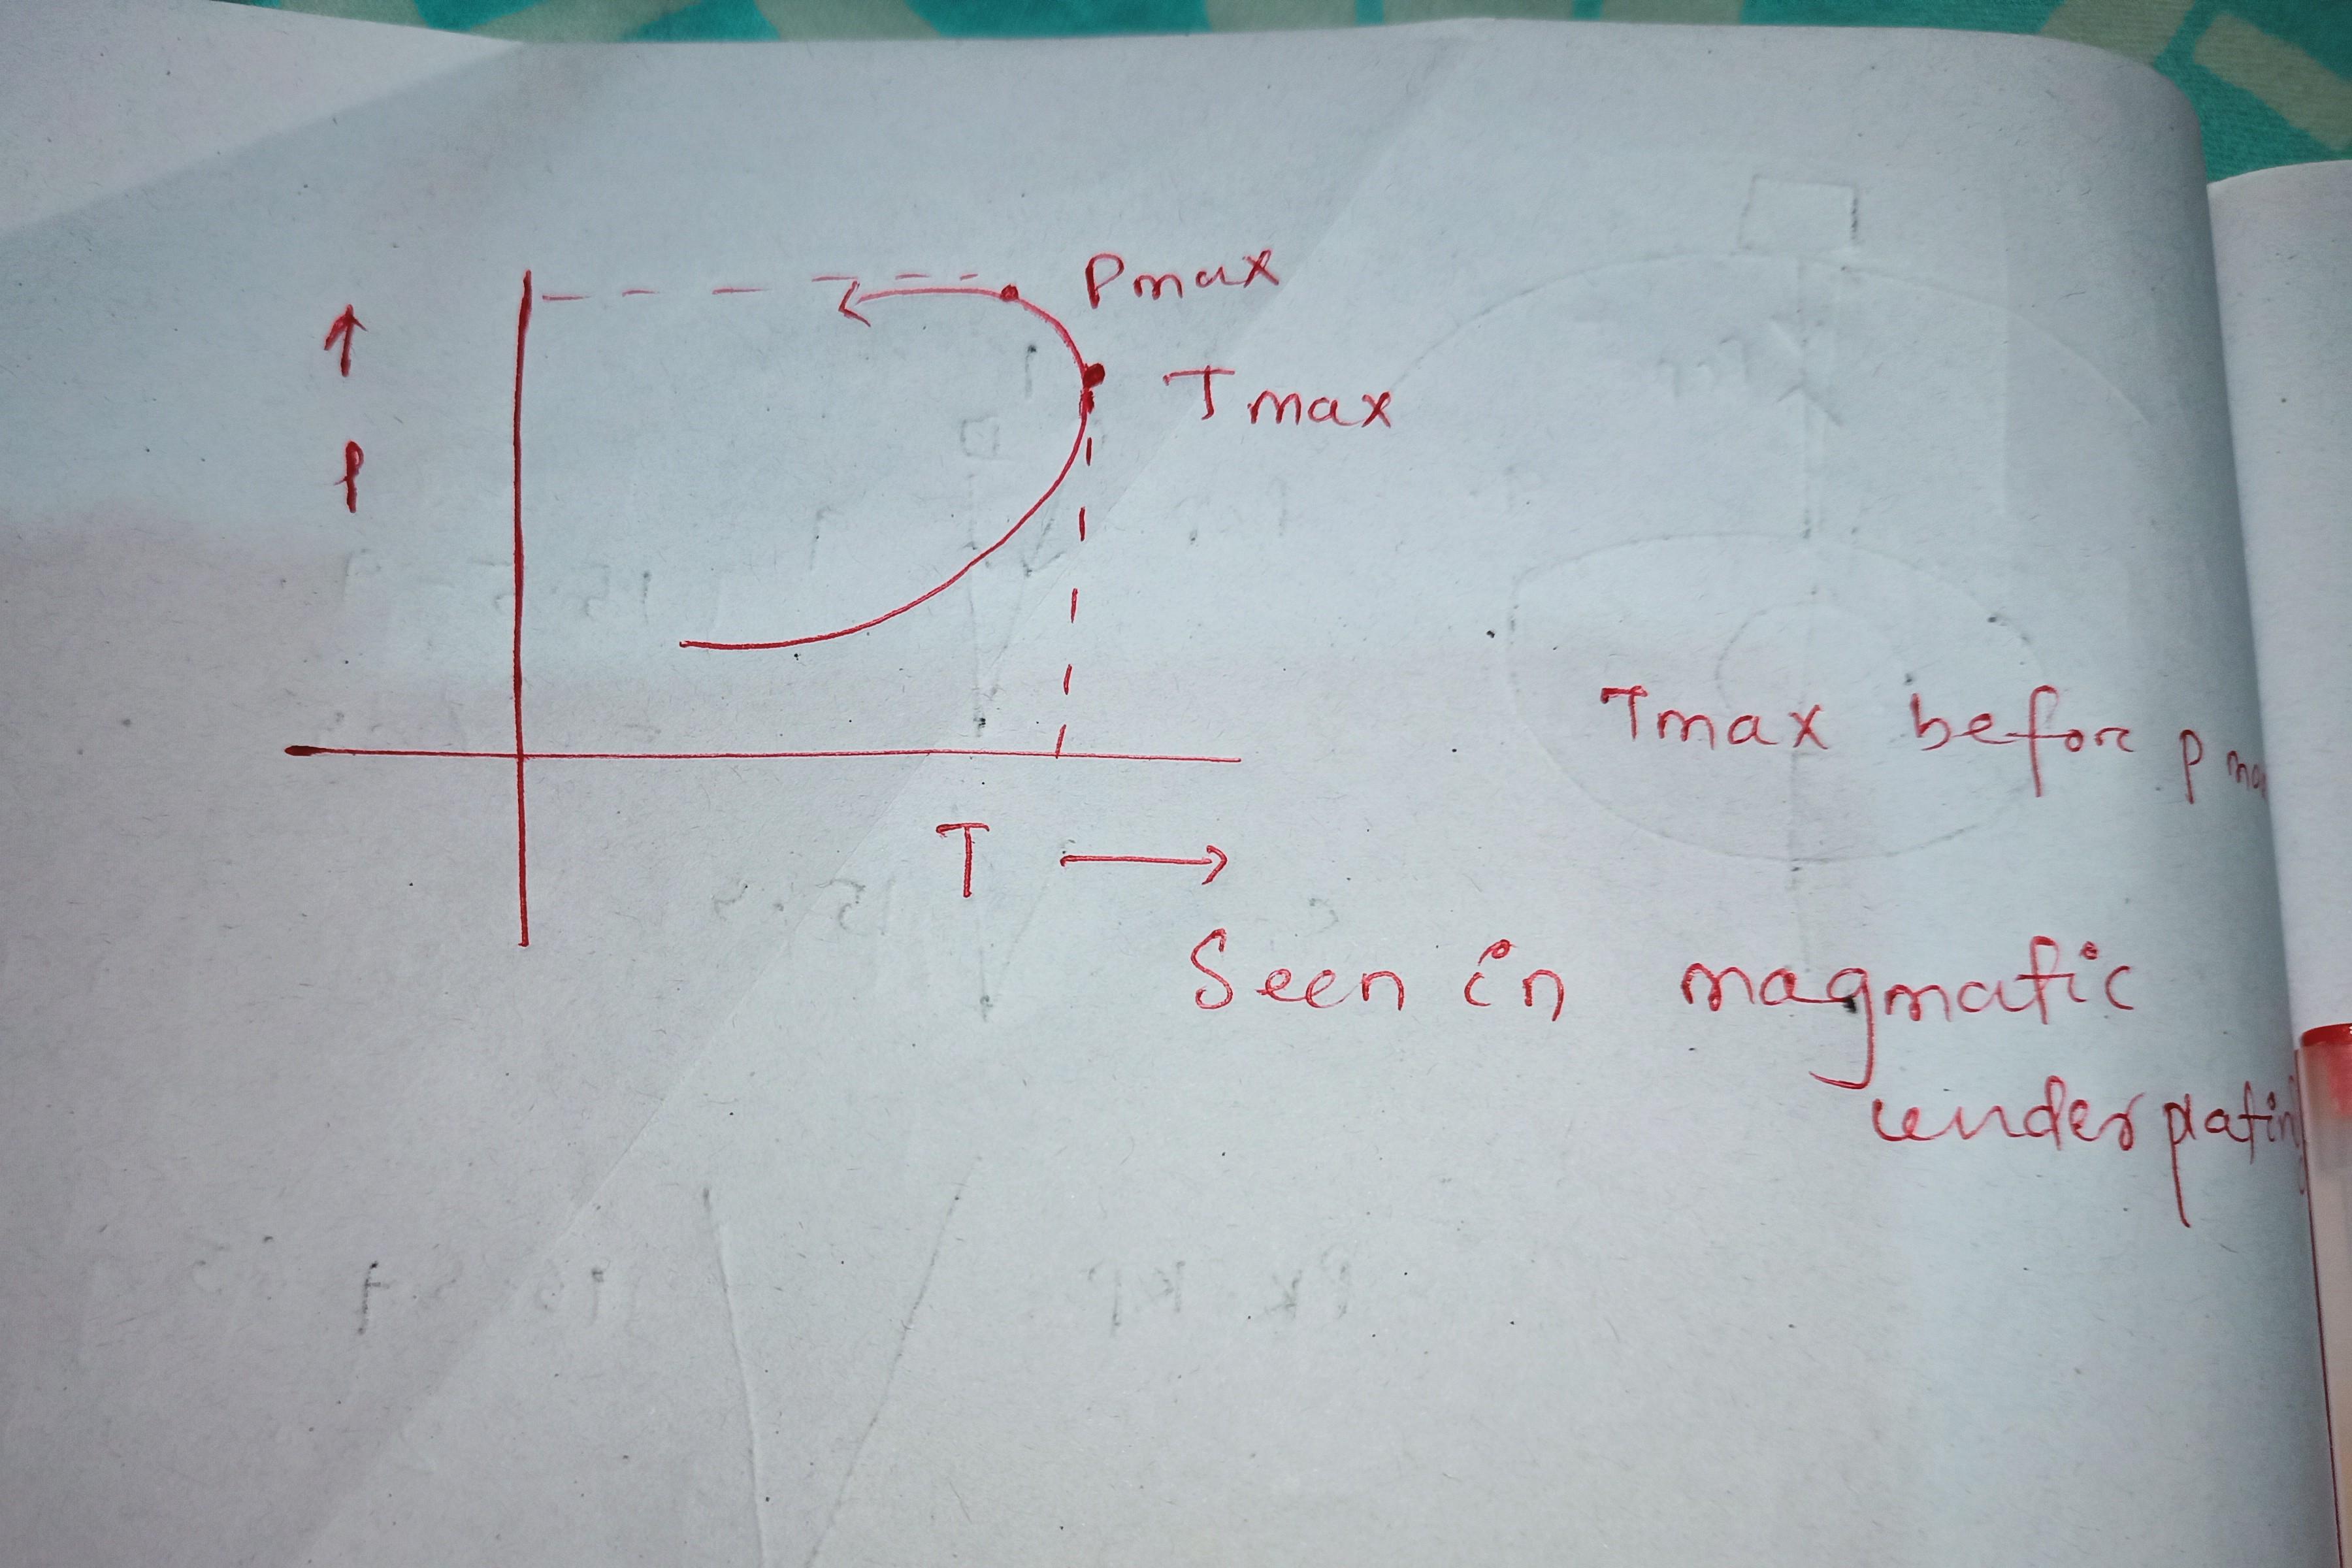 Pmax
↑
Tmax
P
Tmax before P
T →
Seen in magmatic
underplating